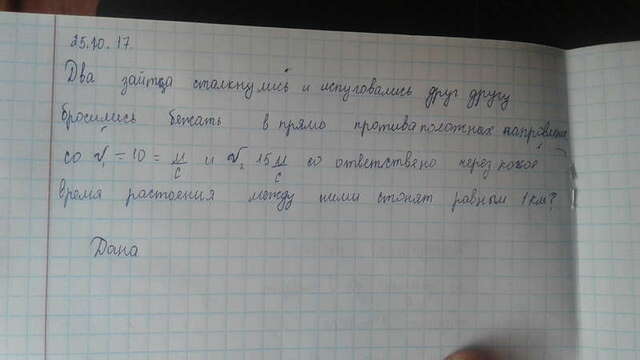 25.10.17.
Два зайтца столкнулись и испуговались друг другу
бросились бежать в прямо противаположных направления
со V₁ = 10 = м/с и V₂ 15 м/с со ответствено через какое
время растоения между ними стонат равным 1 км?
Дана